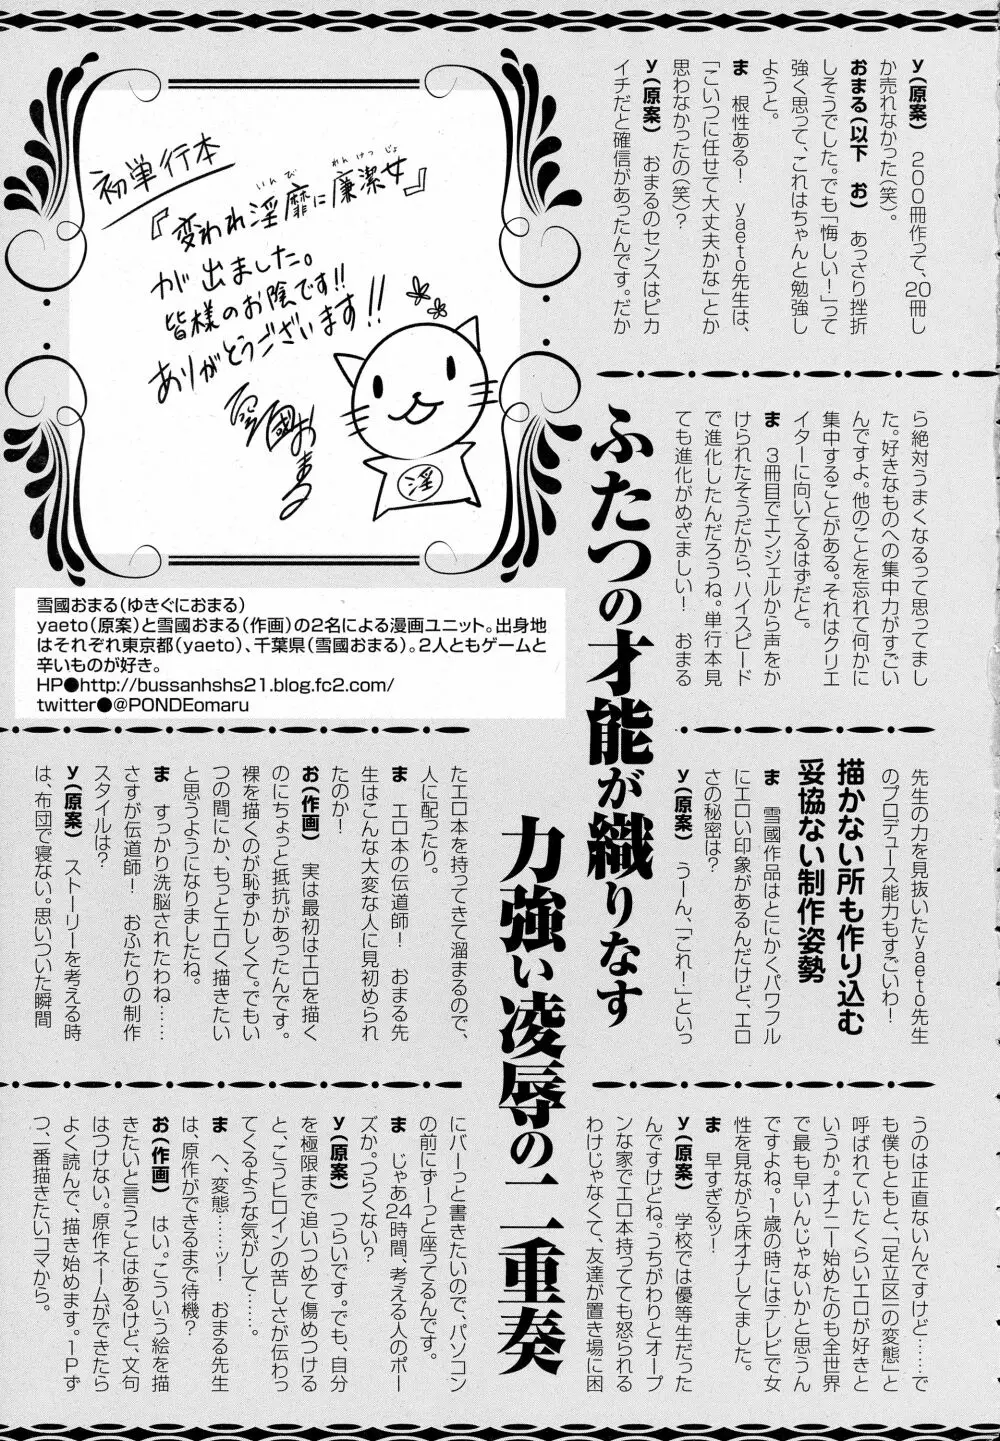 y(原案)　200冊作って、20冊し
か売れなかった(笑)。
おまる(以下　お)　あっさり挫折
しそうでした。でも「悔しい！」って
強く思って、これはちゃんと勉強し
ようと。
ま　根性ある！　yaeto先生は、
「こいつに任せて大丈夫かな」とか
思わなかったの(笑)？
y(原案)　おまるのセンスはピカ
イチだと確信があったんです。だか
ら絶対うまくなるって思ってまし
た。好きなものへの集中力がすごい
んですよ。他のことを忘れて何かに
集中することがある。それはクリエ
イターに向いてるはずだと。
ま　3冊目でエンジェルから声をか
けられたそうだから、ハイスピード
で進化したんだろうね。単行本見
ても進化がめざましい！　おまる
先生の力を見抜いたyaeto先生
のプロデュース能力もすごいわ！
描かない所も作り込む
妥協ない制作姿勢
ま　雪國作品はとにかくパワフル
にエロい印象があるんだけど、エロ
さの秘密は？
y(原案)　うーん、「これ！」といっ
うのは正直ないんですけど……で
も僕もともと、「足立区一の変態」と
呼ばれていたくらいエロが好きと
いうか。オナニー始めたのも全世界
で最も早いんじゃないかと思うん
ですよね。1歳の時にはテレビで女
性を見ながら床オナしてました。
ま　早すぎるッ！
y(原案)　学校では優等生だった
んですけどね。うちがわりとオープ
ンな家でエロ本持ってても怒られる
わけじゃなくて、友達が置き場に困
たエロ本を持ってきて溜まるので、
人に配ったり。
ま　エロ本の伝道師！　おまる先
生はこんな大変な人に見初められ
たのか！
お(作画)　実は最初はエロを描く
のにちょっと抵抗があったんです。
裸を描くのが恥ずかしくて。でもい
つの間にか、もっとエロく描きたい
と思うようになりましたね。
ま　すっかり洗脳されたわね……
さすが伝道師！　おふたりの制作
スタイルは？
y(原案)　ストーリーを考える時
は、布団で寝ない。思いついた瞬間
にバーっと書きたいので、パソコン
の前にずーっと座ってるんです。
ま　じゃあ24時間、考える人のポー
ズか。つらくない？
y(原案)　つらいです。でも、自分
を極限まで追いつめて傷めつける
と、こうヒロインの苦しさが伝わっ
てくるような気がして……。
ま　へ、変態……ッ！　おまる先生
は、原作ができるまで待機？
お(作画)　はい。こういう絵を描
きたいと言うことはあるけど、文句
はつけない。原作ネームができたら
よく読んで、描き始めます。1Pず
つ、一番描きたいコマから。
ふたつの才能が織りなす
力強い凌辱の二重奏
初単行本
『変われ淫靡に廉潔女』
いんび
れんけつじょ
が出ました。
皆様のお陰です!!
ありがとうございます!!
雪國おまる
淫
雪國おまる(ゆきぐにおまる)
yaeto(原案)と雪國おまる(作画)の2名による漫画ユニット。出身地
はそれぞれ東京都(yaeto)、千葉県(雪國おまる)。2人ともゲームと
辛いものが好き。
HP●http://bussanhshs21.blog.fc2.com/
twitter●@PONDEomaru